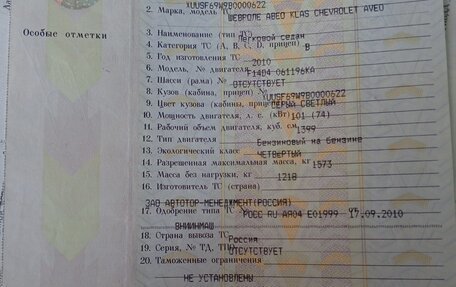 XUUSF69W9B0000622
2. Марка, модель ТС ШЕВРОЛЕ АВЕО KLAS CHEVROLET AVEO
Особые отметки
3. Наименование (тип ТС) Легковой седан
4. Категория ТС (A, B, C, D, прицеп) B
5. Год изготовления ТС 2010
6. Модель, № двигателя F14D4 061196KA
7. Шасси (рама) № ОТСУТСТВУЕТ
8. Кузов (кабина, прицеп) № XUUSF69W9B0000622
9. Цвет кузова (кабины, прицепа) СЕРЫЙ СВЕТЛЫЙ
10. Мощность двигателя, л. с. (кВт) 101 (74)
11. Рабочий объем двигателя, куб. см 1399
12. Тип двигателя Бензиновый на бензине
13. Экологический класс ЧЕТВЕРТЫЙ
14. Разрешенная максимальная масса, кг 1573
15. Масса без нагрузки, кг 1218
16. Изготовитель ТС (страна)
ЗАО АВТОТОР-МЕНЕДЖМЕНТ(РОССИЯ)
17. Одобрение типа ТС № РОСС RU АЯ04 Е01999 от 17.09.2010
ВНИИНМАШ
18. Страна вывоза ТС Россия
19. Серия, № ТД, ТПО ОТСУТСТВУЕТ
20. Таможенные ограничения
НЕ УСТАНОВЛЕНЫ